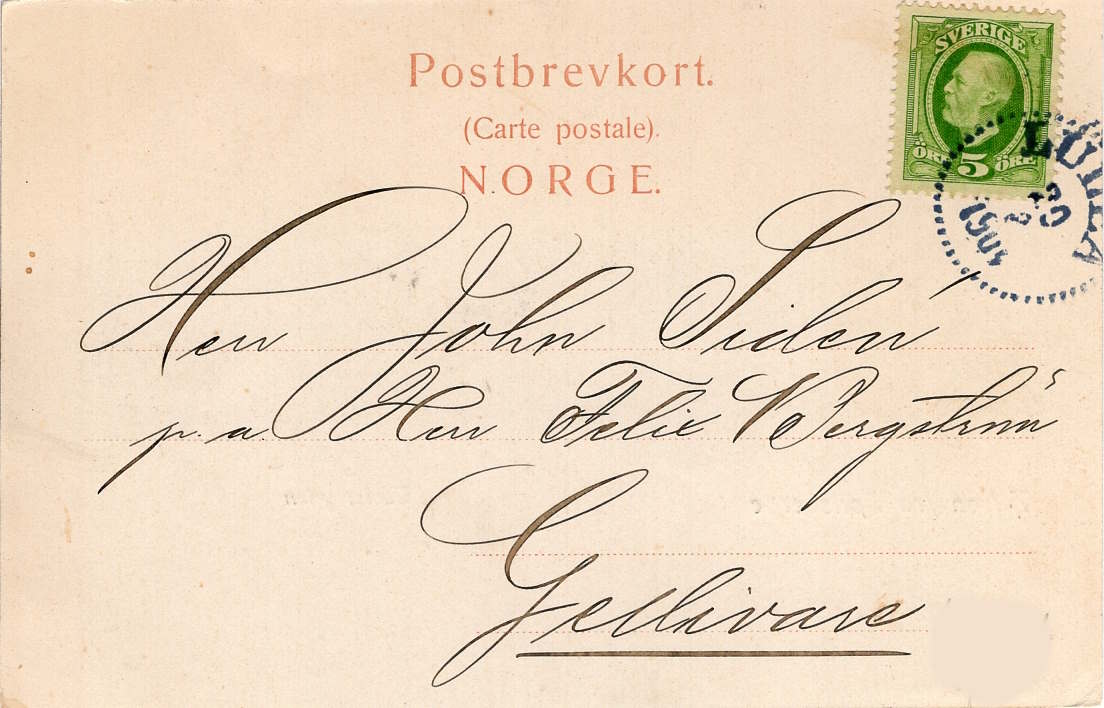 Postbrevkort.
(Carte postale).
NORGE.
SVERIGE
ÖRE 5 ÖRE
LULEA
20
2
Herr John Sidén
p. a. Herr Felix Bergström
Gellivare